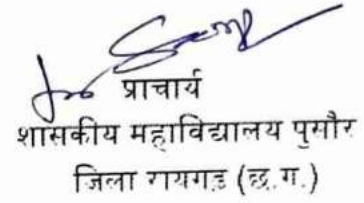 प्राचार्य
शासकीय महाविद्यालय पुसौर
जिला रायगड (छ.ग.)